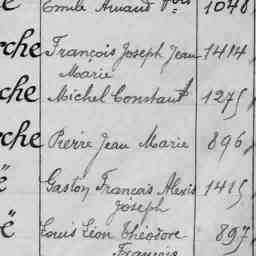 Emile Arnaud 1048
rche François Joseph Jean 1414
Marie
che Michel Constant 1275
rche Pierre Jean Marie 896
ë Gaston François Alexis 1415
Joseph
ë Louis Léon Théodore 897
François